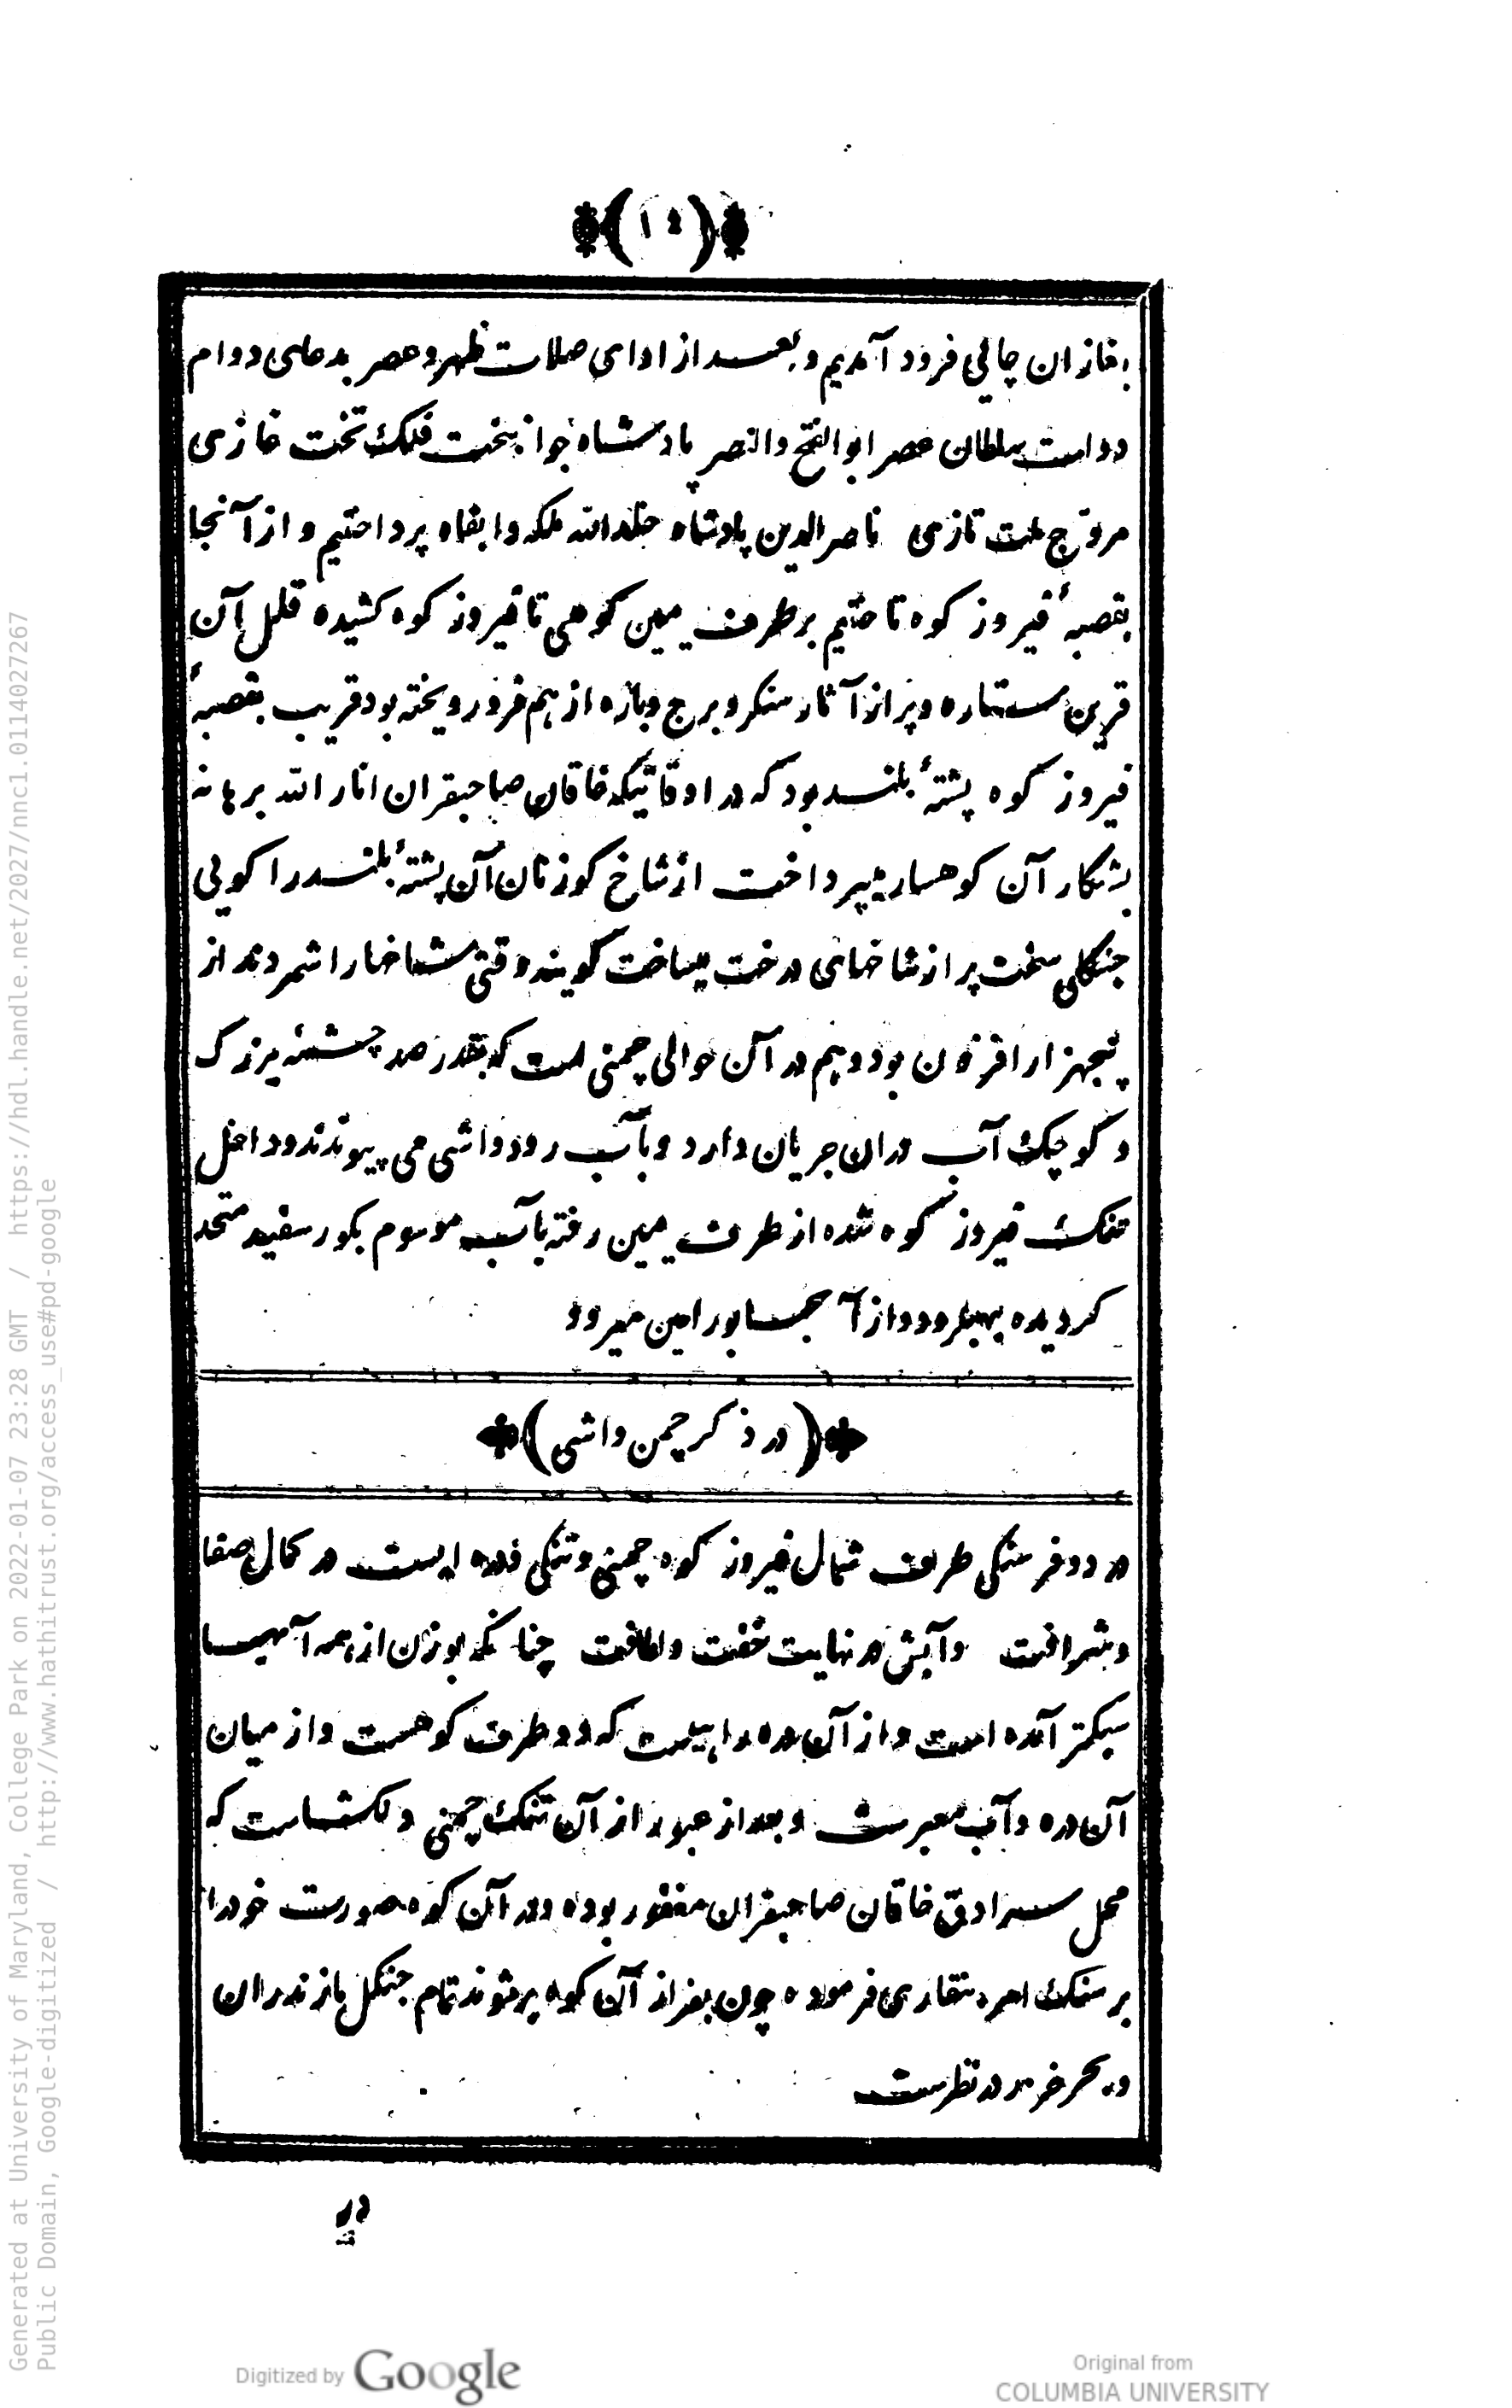 (١٤)
بغازان چالی فرود آمدیم و بعد از ادای صلات ظهر و عصر بدعای دوام
دولت سلطان عصر ابوالفتح والنصر پادشاه جوانبخت فلک تخت غازی
مروّج ملت تازی ناصرالدین پادشاه خلدالله ملکه وابقاه پرداختیم و از آنجا
بقصبهٔ فیروز کوه تاختیم بر طرف یمین کوهی تا فیروز کوه کشیده قلل آن
قرین ستاره و پر از آثار سنکر و برج و باره از هم فرو ریخته بود قریب بقصبهٔ
فیروز کوه پشتهٔ بلند بود که در اوقاتیکه خاقان صاحبقران انار الله برهانه
بشکار آن کوهسار میپرداخت از شاخ کوزنان آن پشتهٔ بلند را کویی
جنکلی سخت پر از شاخهای درخت میساخت کویند وقتی شاخها را شمردند از
پنجهزار افزون بود و هم در آن حوالی چمنی است که بقدر صد چشمهٔ بزرک
و کوچک آب در ان جریان دارد و با آب رود واشی می پیوندند و داخل
تنک فیروز کوه شده از طرف یمین رفته با آب موسوم بکور سفید متحد
کردیده بهبلرود و از آنجا بورامین میرود
(در ذکر چمن واشی)
در دو فرسنکی طرف شمال فیروز کوه چمنی و تنکی و دره ایست در کمال صفا
و شرافت وآبش در نهایت خفت و لطافت چنانکه بوزن از همه آبها
سبکتر آمده است و از آن دره راهیست که دو طرف کوهست و از میان
آن دره و آب معبرست و بعد از عبور از آن تنک چمنی دلکشاست که
محل سرادق خاقان صاحبقران مغفور بوده و در آن کوه صورت خود را
بر سنک امر بنقاری فرموده چون بفراز آن کوه بر شوند تمام جنکل مازندران
و بحر خزر در نظرست
در
Generated at University of Maryland, College Park on 2022-01-07 23:28 GMT / https://hdl.handle.net/2027/nnc1.0114027267
Public Domain, Google-digitized / http://www.hathitrust.org/access_use#pd-google
Digitized by Google
Original from
COLUMBIA UNIVERSITY